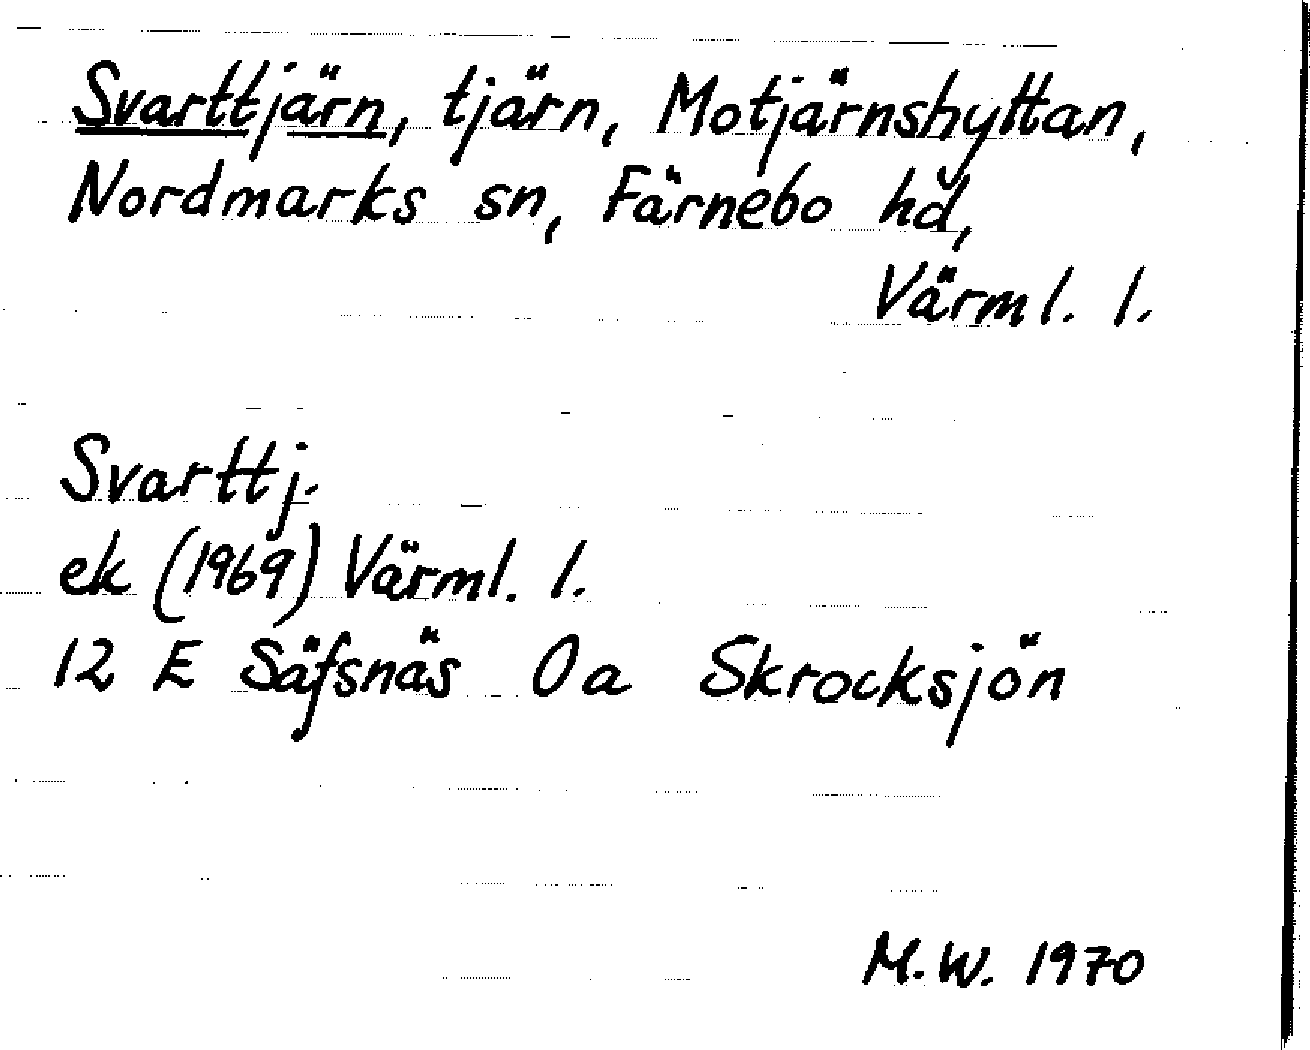 Svarttjärn, tjärn, Motjärnshyttan,
Nordmarks sn, Färnebo hd,
Värml. l.
Svarttj.
ek (1969) Värml. l.
12 E Säfsnäs 0a Skrocksjön
M.W. 1970